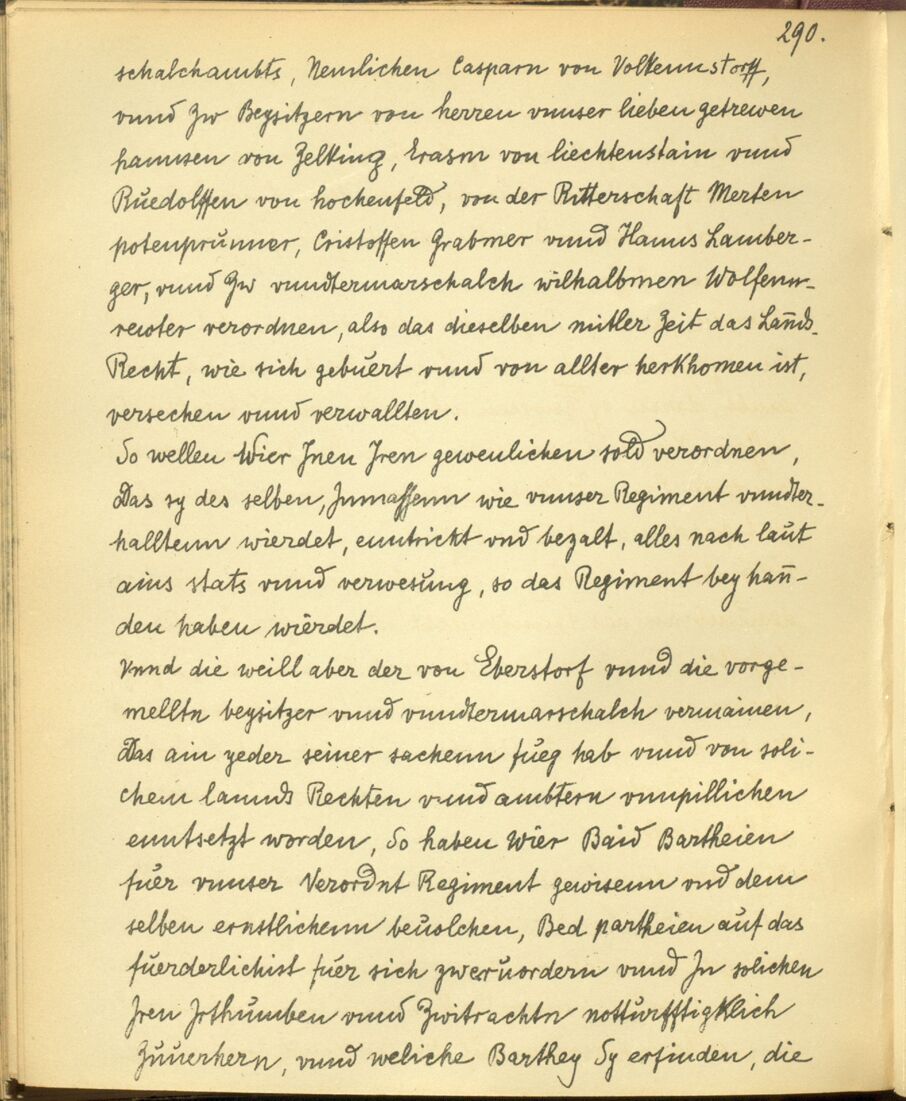 290.
schalchambts, Nemlichen Casparn von Volkennstorff,
vnnd Zw Beysitzern von herren vnnser lieben getrewen
hannsen von Zelking, Erasm von liechtenstain vnnd
Ruedolffen von hochenfeld, von der Ritterschaft Merten
potenprunner, Cristoffen Grabmer vnnd Hanns Lamber-
ger, vnnd Zw vnndtermarschalch wilhalbmen Wolfenn-
rewter verordnen, also das dieselben mitler Zeit das Lannds-
Recht, wie sich gebuert vnnd von allter herkhomen ist,
versechen vnnd verwallten.
So wellen Wier Jnen Jren gewenlichen sold verordnen,
Das sy des selben, Jnmassenn wie vnnser Regiment vnndter-
halltenn wierdet, enntrickt vnd bezalt, alles nach laut
ains stats vnnd verwesung, so das Regiment bey han̄-
den haben wierdet.
Vnnd die weill aber der von Eberstorf vnnd die vorge-
melltn beysitzer vnnd vnndtermarschalch vermainen,
Das ain yeder seiner sachenn fueg hab vnnd von soli-
chem lannds Rechten vnnd ambtern vnnpillichen
enntsetzt worden, So haben Wier Baid Bartheien
fuer vnnser Verordnt Regiment gewisenn vnd dem
selben ernstlichenn beuolchen, Bed partheien auf das
fuerderlichist fuer sich zweruordern vnnd Jn solichen
Jren Jrthumben vnnd Zwitrachtn notturfftigklich
Zuuerhern, vnnd weliche Barthey Sy erfinden, die